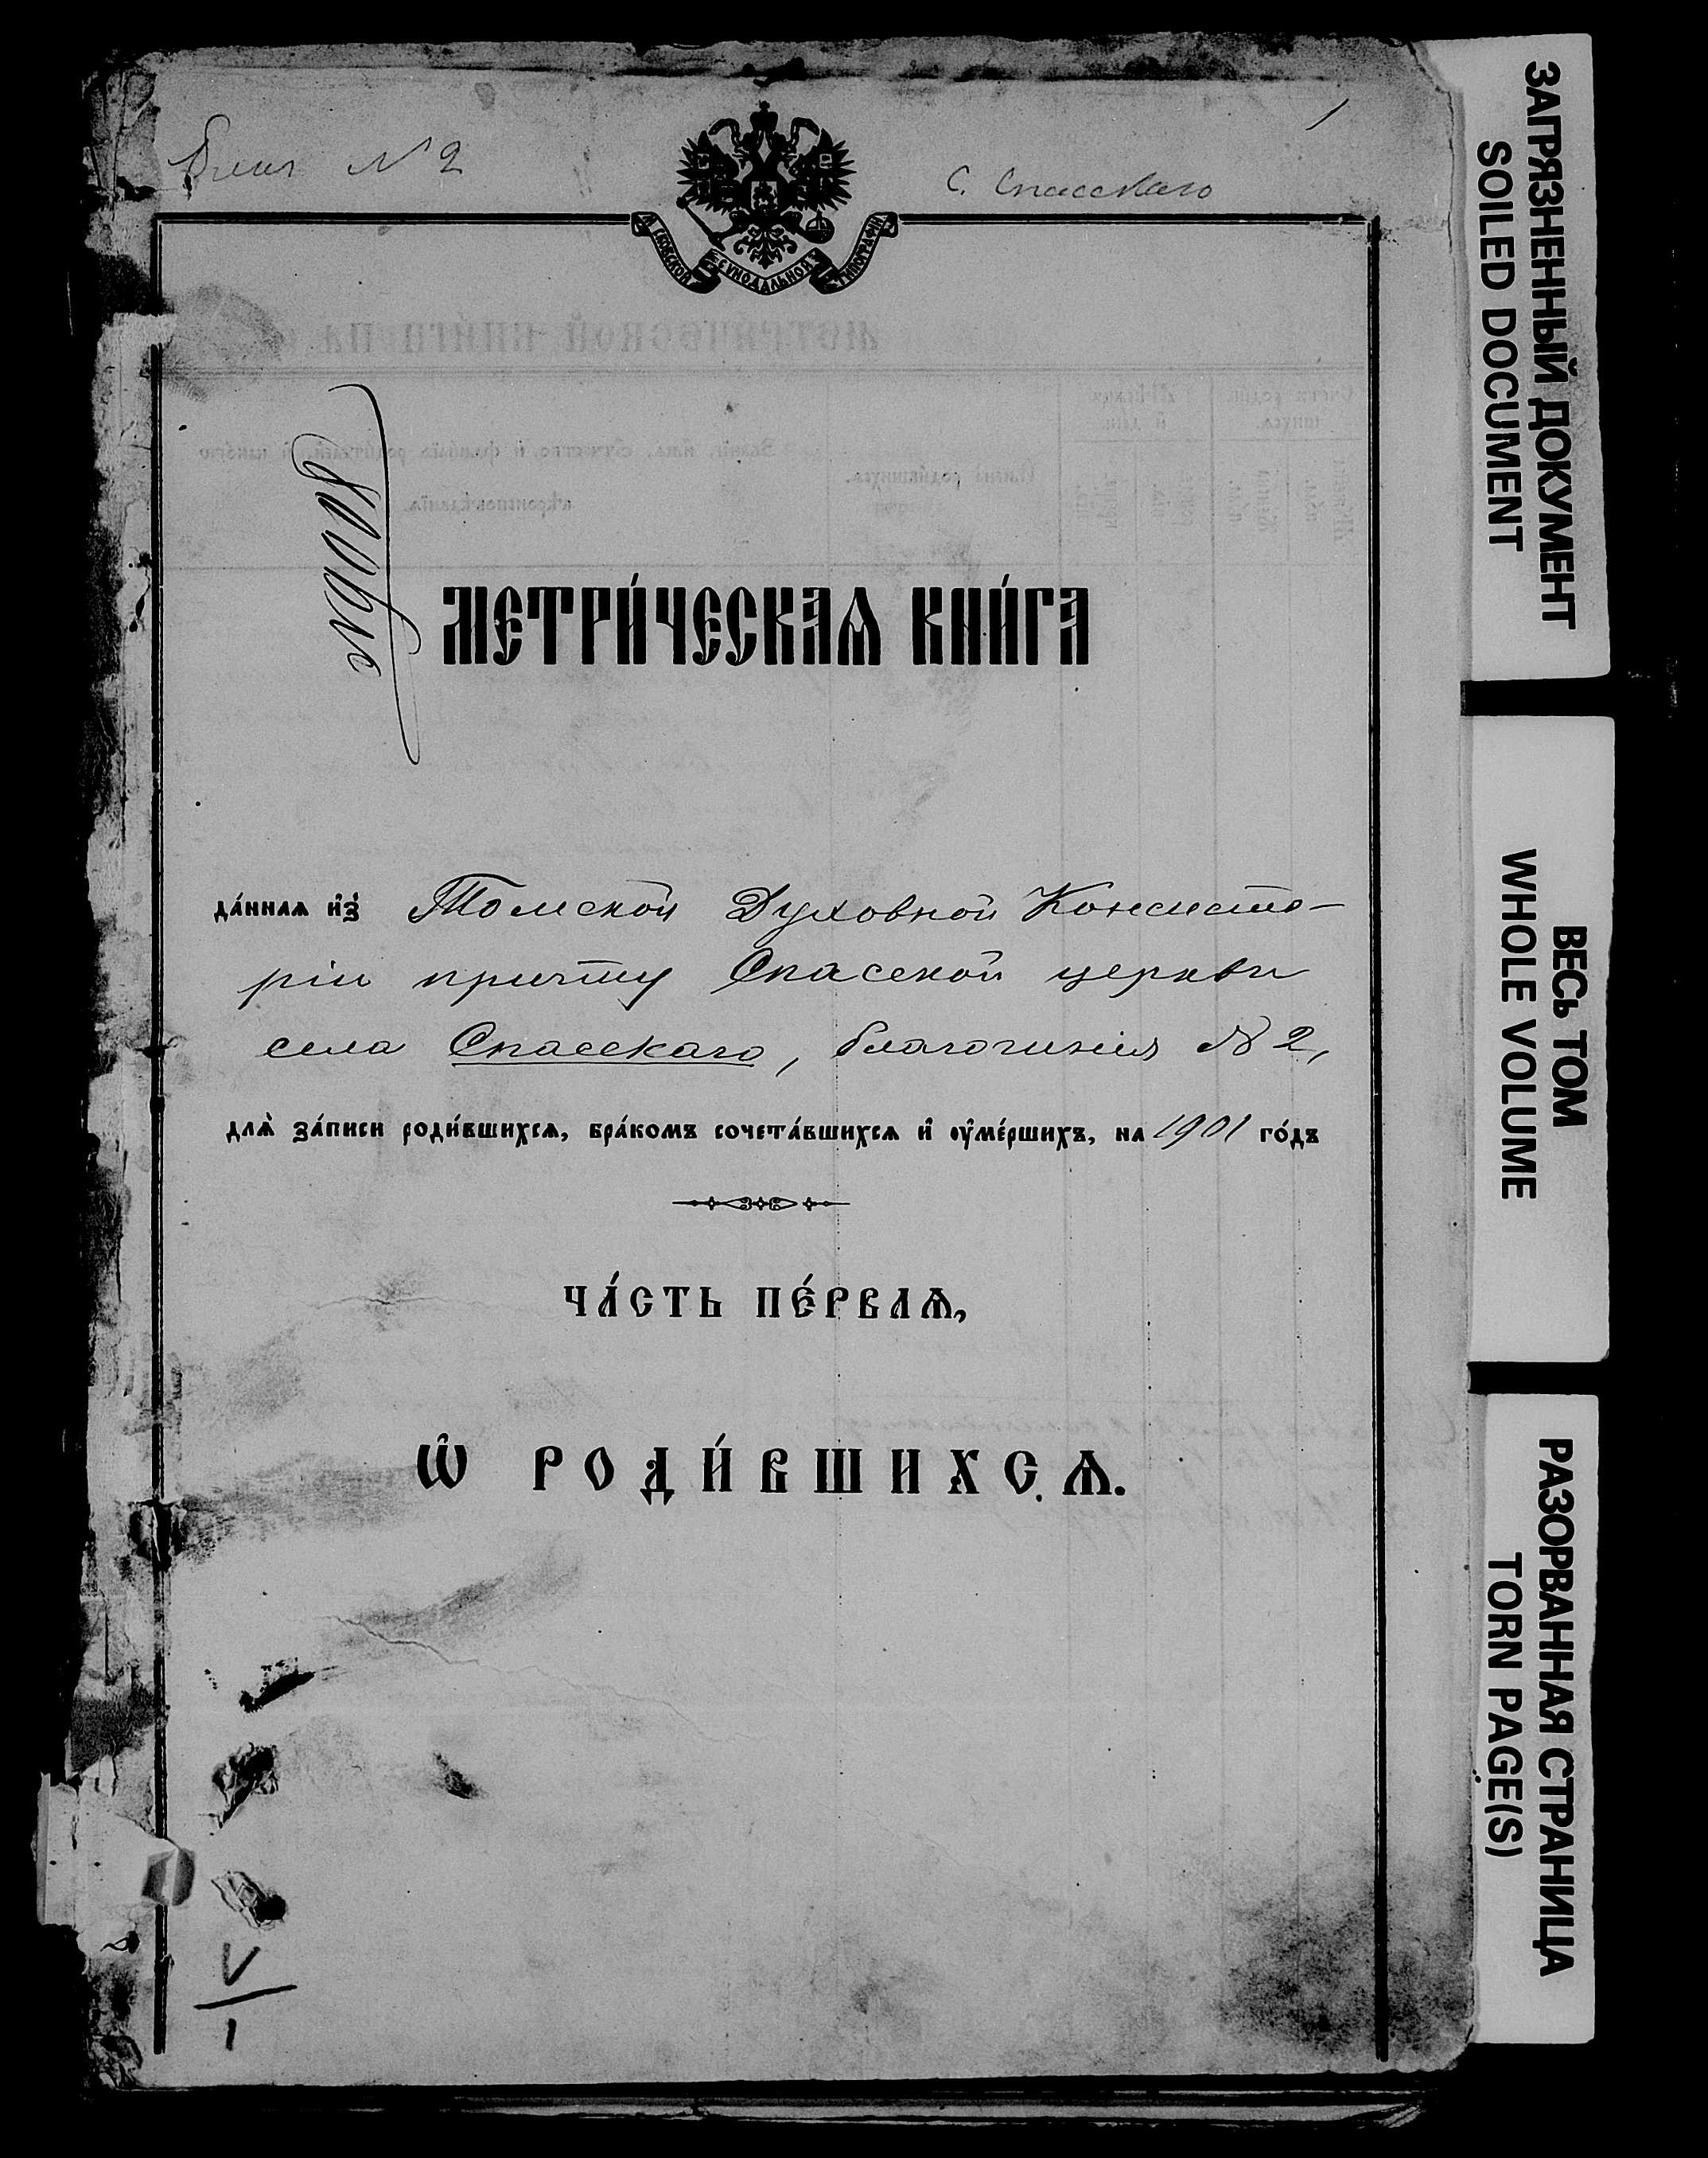 1
№ 2
с. Спасскаго
МОСКОВСКОЙ СѴНОДАЛЬНОЙ ТИПОГРАФІИ
МЕТРИ́ЧЕСКАѦ КНИ́ГА
да́ннаѧ и҆з̾ Томской Духовной Консисто-
ріи причту Спасской церкви
села Спасскаго, благочинія № 2,
длѧ̀ за́писи роди́вшихсѧ, бра́комъ сочета́вшихсѧ и҆ ᲂу҆ме́ршихъ, на 1901 го́дъ
ЧА́СТЬ ПЕ́РВАѦ,
Ѽ РОДИ́ВШИХСѦ.
V
1
ЗАГРЯЗНЕННЫЙ ДОКУМЕНТ
SOILED DOCUMENT
ВЕСЬ ТОМ
WHOLE VOLUME
РАЗОРВАННАЯ СТРАНИЦА
TORN PAGE(S)